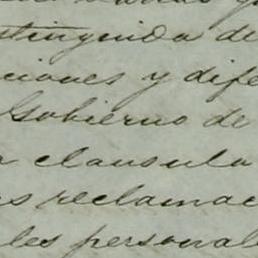 stinguida de
ciones y dife
Gobierno de
a clausula
s reclamac
les personal